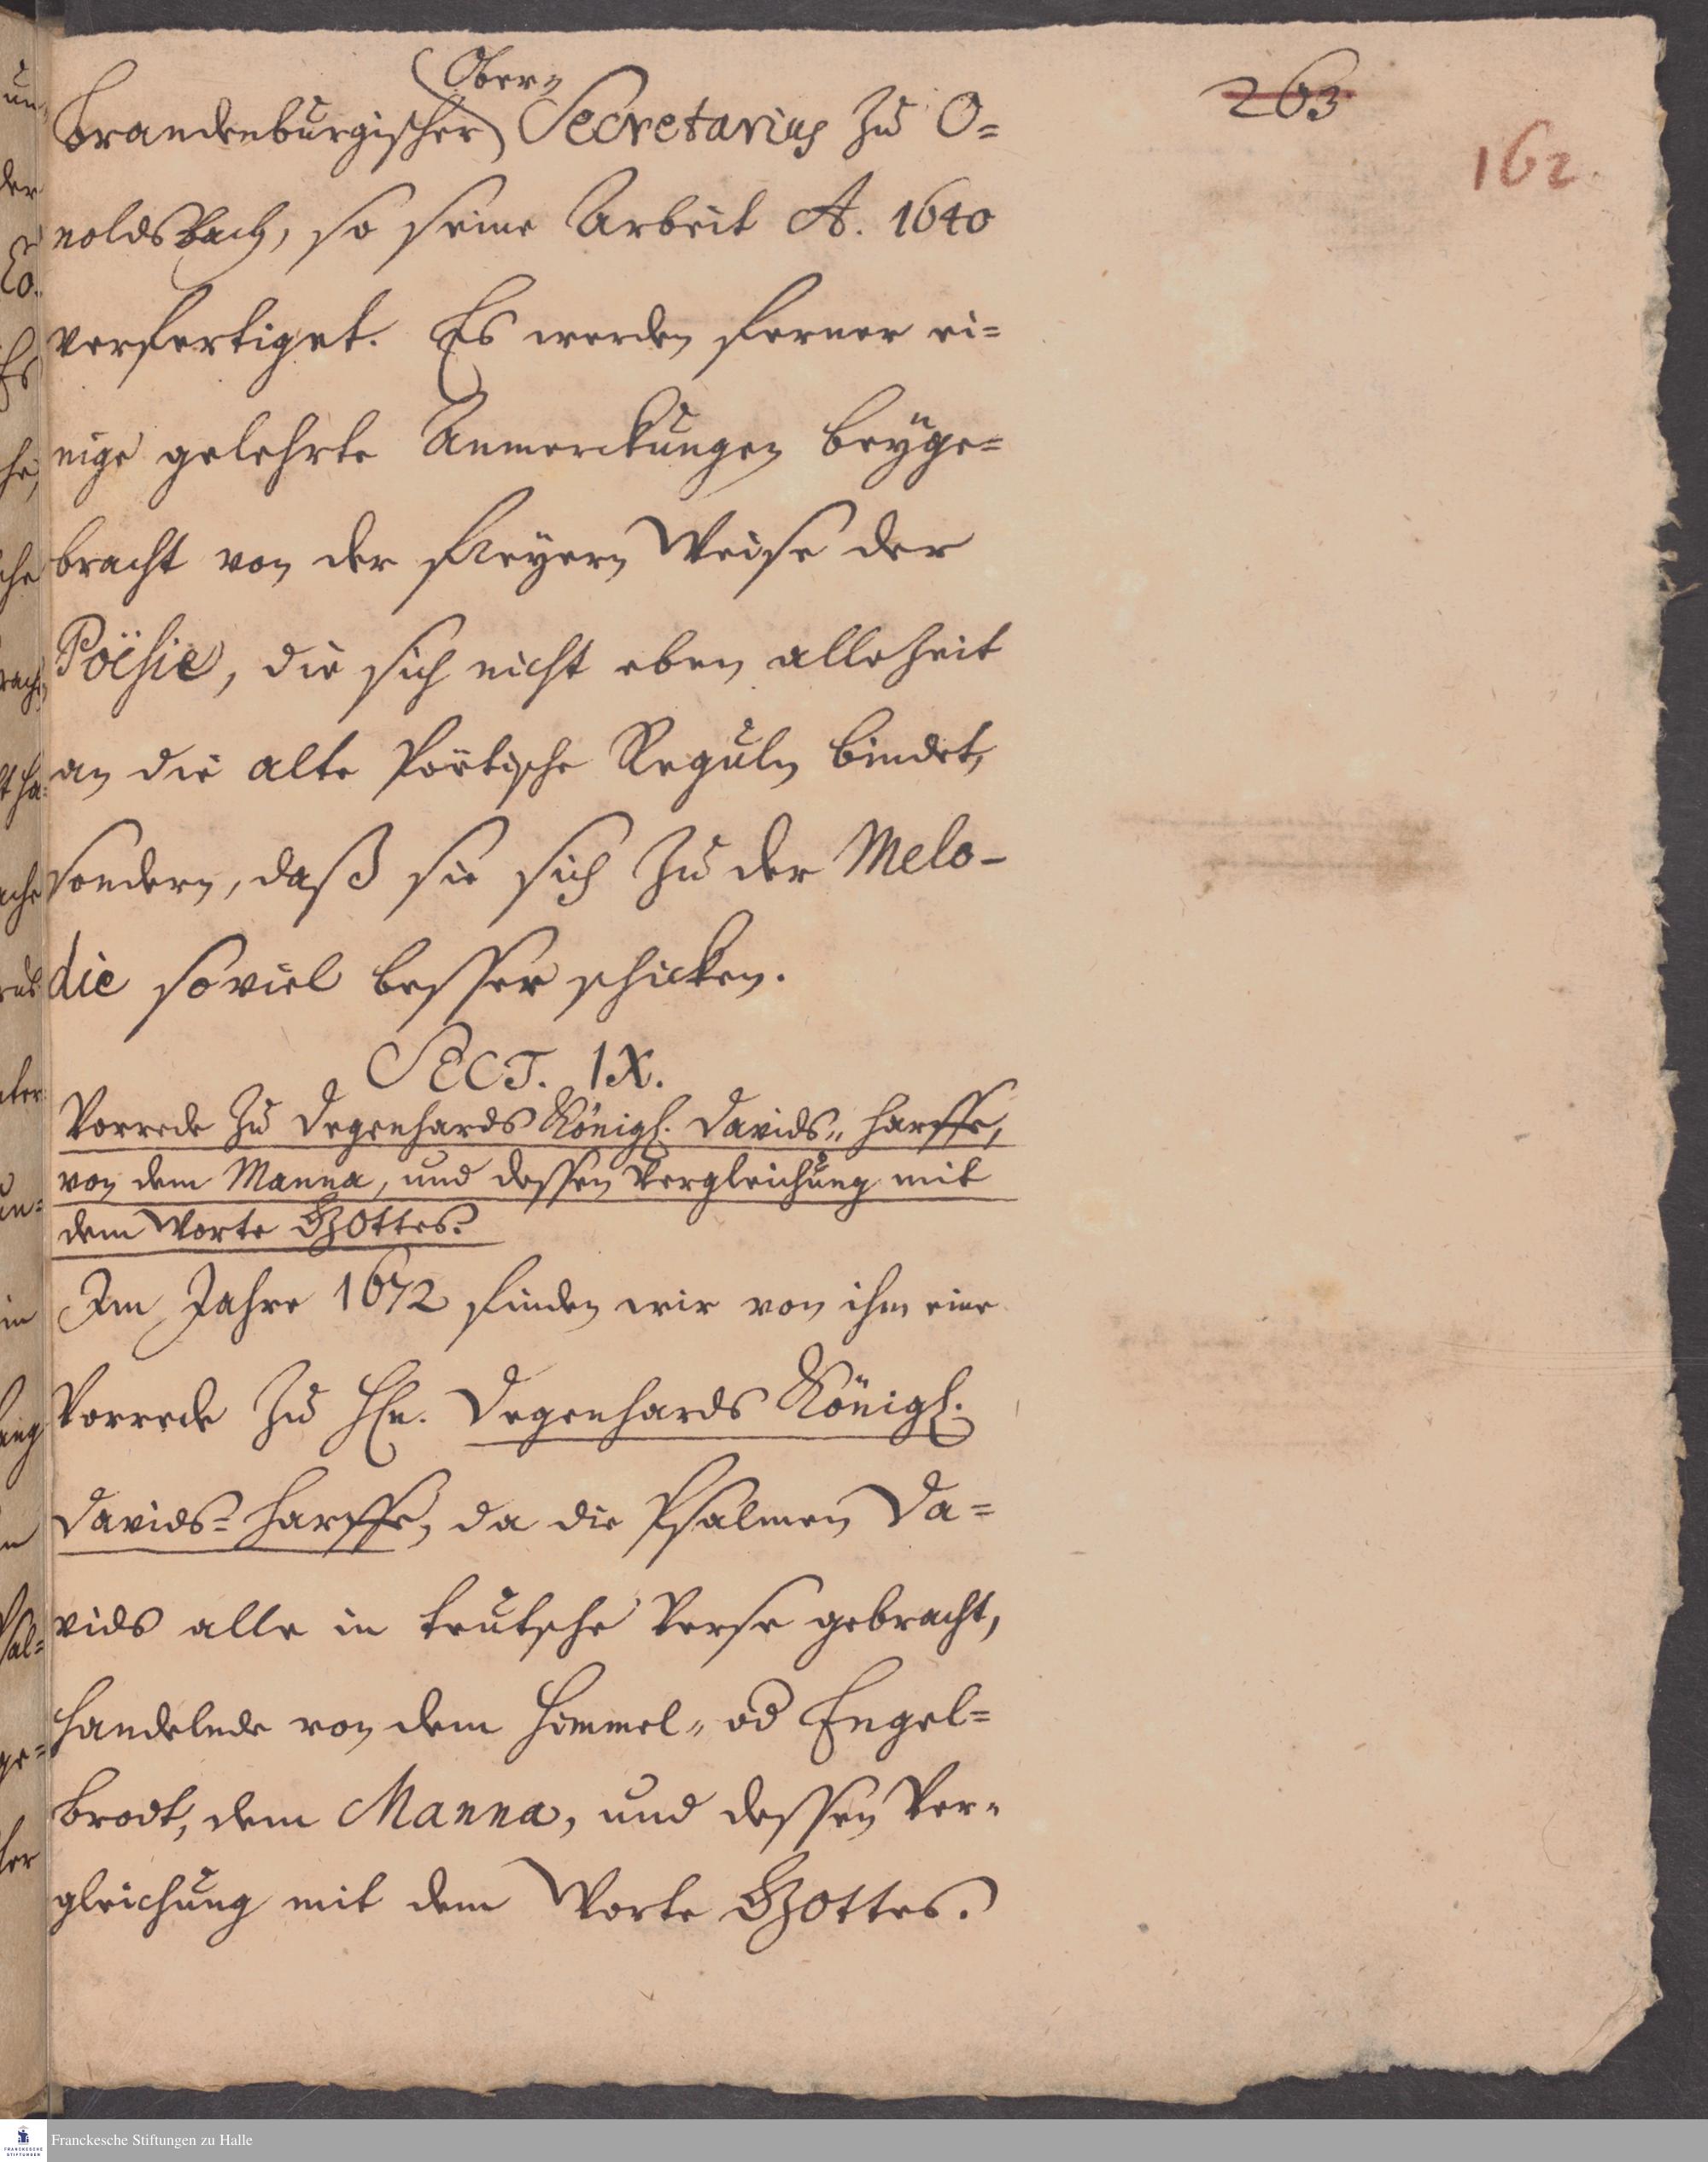 263
162.
Ober-
Brandenburgischer Secretarius zu O=
noldsbach, so seine Arbeit A. 1640
verfertiget. Es werden ferner ei=
nige gelehrte Anmerckungen beyge=
bracht von der freyern Weise der
Poësie, die sich nicht eben allezeit
an die alte Poëtische Reguln bindet,
sondern, daß sie sich zu der Melo-
die soviel besser schicken.
SECT. IX.
Vorrede zu Degenhards Königl. Davids- Harffe,
von dem Manna, und dessen Vergleichung mit
dem Worte GOttes.
Im Jahre 1672 finden wir von ihm eine
Vorrede zu Hn. Degenhards Königl.
Davids= Harffe, da die Psalmen Da=
vids alle in teutsche Verse gebracht,
handelnde von dem Himmel- od Engel=
brodt, dem Manna, und dessen Ver-
gleichung mit dem Worte GOttes.
Franckesche Stiftungen zu Halle